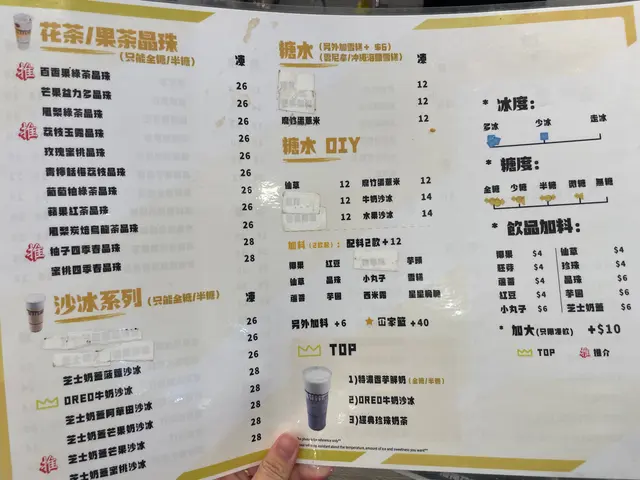 花茶/果茶晶珠
(只能全糖/半糖)
凍
推 百香果綠茶晶珠 26
芒果益力多晶珠 26
鳳梨綠茶晶珠 26
推 荔枝玉露晶珠 26
玫瑰蜜桃晶珠 26
青檸話梅荔枝晶珠 26
葡萄柚綠茶晶珠 26
蘋果紅茶晶珠 26
鳳梨炭焙烏龍茶晶珠 28
推 柚子四季春晶珠 28
蜜桃四季春晶珠 28
沙冰系列 (只能全糖/半糖)
凍
26
26
芝士奶蓋菠蘿沙冰 26
OREO牛奶沙冰 28
芝士奶蓋阿華田沙冰 28
芝士奶蓋芒果奶沙冰 28
芝士奶蓋芒果沙冰 28
推 芝士奶蓋蜜桃沙冰 28
糖水 (另外加雪糕+ $6)
(雲尼拿/沖繩海鹽雪糕)
凍
12
12
腐竹蛋薏米 12
糖水 DIY
仙草 12
腐竹蛋薏米 12
12
牛奶沙冰 14
12
水果沙冰 14
加料(2款起): 配料2款+12
椰果 紅豆 芋頭
仙草 晶珠 小丸子 雪糕
蘆薈 芋圓 西米露
另外加料 +6
★ +40
TOP
1)特濃香芋鮮奶 (全糖/半糖)
2)OREO牛奶沙冰
3)經典珍珠奶茶
* 冰度:
多冰 少冰 走冰
* 糖度:
全糖 少糖 半糖 微糖 無糖
* 飲品加料:
椰果 $4 仙草 $4
$4 珍珠 $4
蘆薈 $4 晶珠 $6
紅豆 $4 芋圓 $6
小丸子 $6 芝士奶蓋 $6
* 加大(只限凍飲) +$10
TOP 推 推介